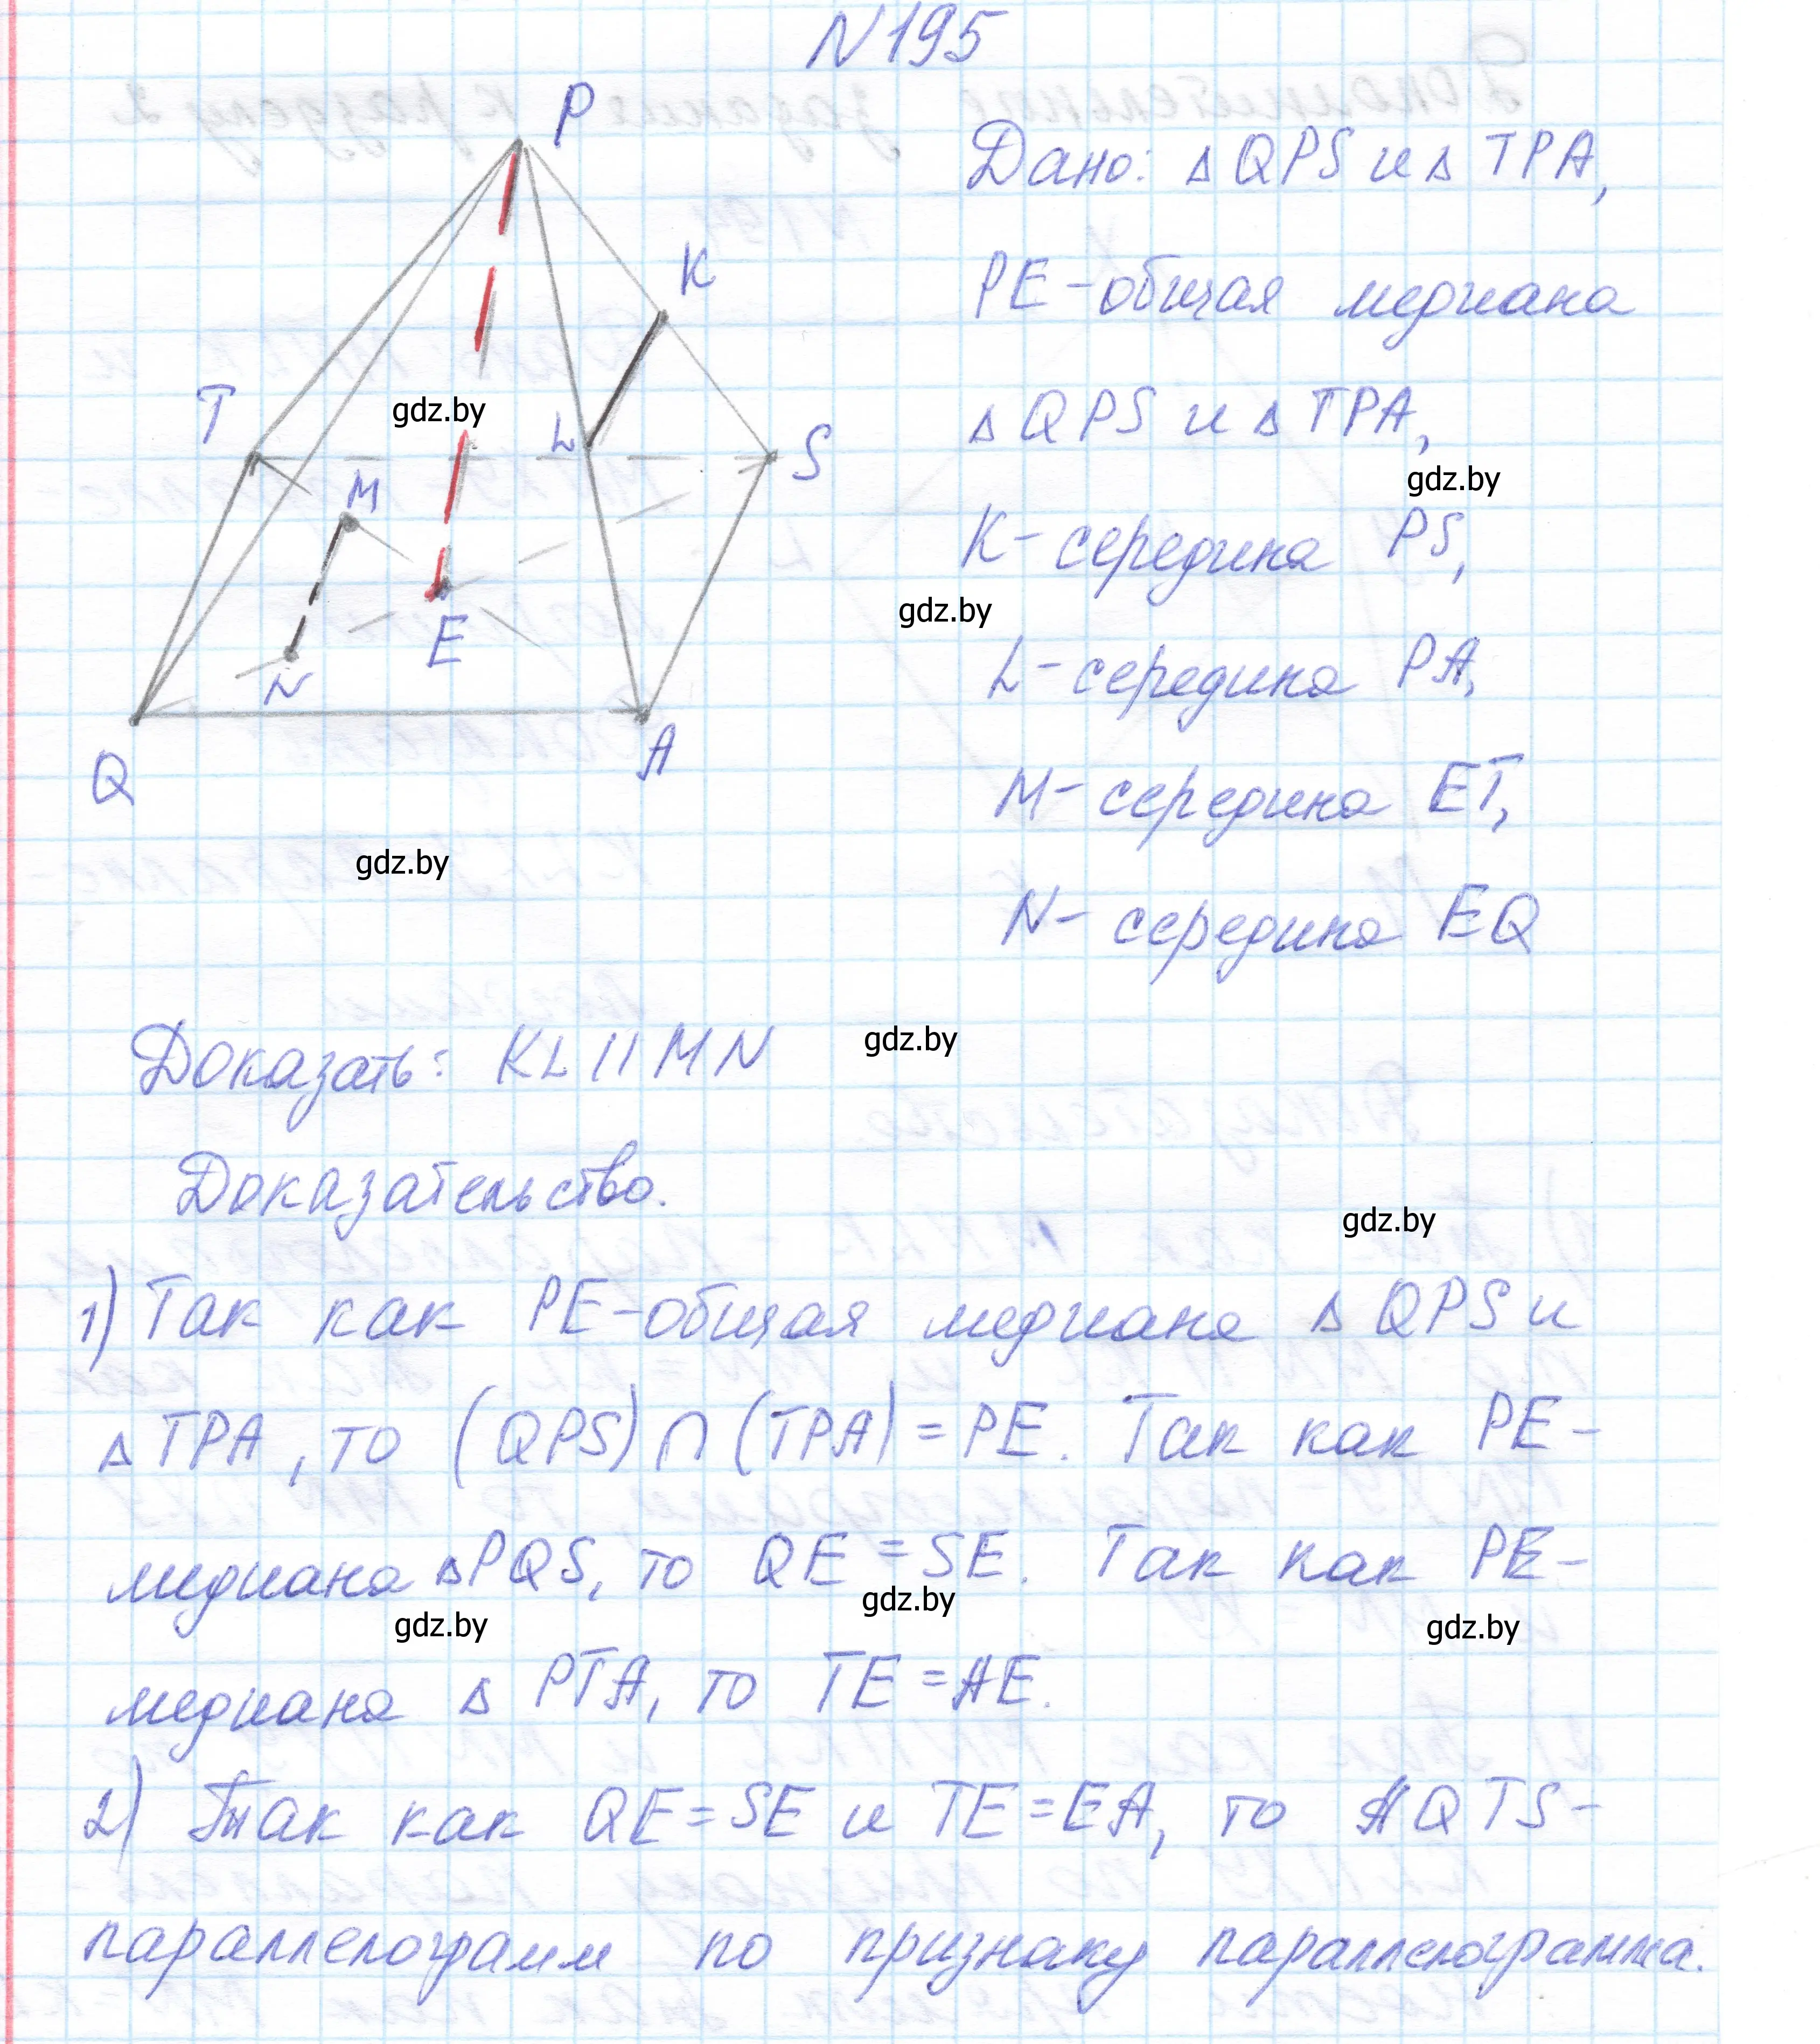 N195
P
K
T
L
S
M
E
N
Q
A
Дано: △QPS и △ TPA,
PE - общая медиана
△QPS и △TPA,
K - середина PS,
L - середина PA,
M - середина ET,
N - середина EQ
Доказать: KL || MN
Доказательство.
1) Так как PE - общая медиана △QPS и
△TPA, то (QPS) ∩ (TPA) = PE. Так как PE -
медиана △PQS, то QE = SE. Так как PE -
медиана △ PTA, то TE = AE.
2) Так как QE = SE и TE = EA, то AQTS -
параллелограмм по признаку параллелограмма.
gdz.by
gdz.by
gdz.by
gdz.by
gdz.by
gdz.by
gdz.by
gdz.by
gdz.by